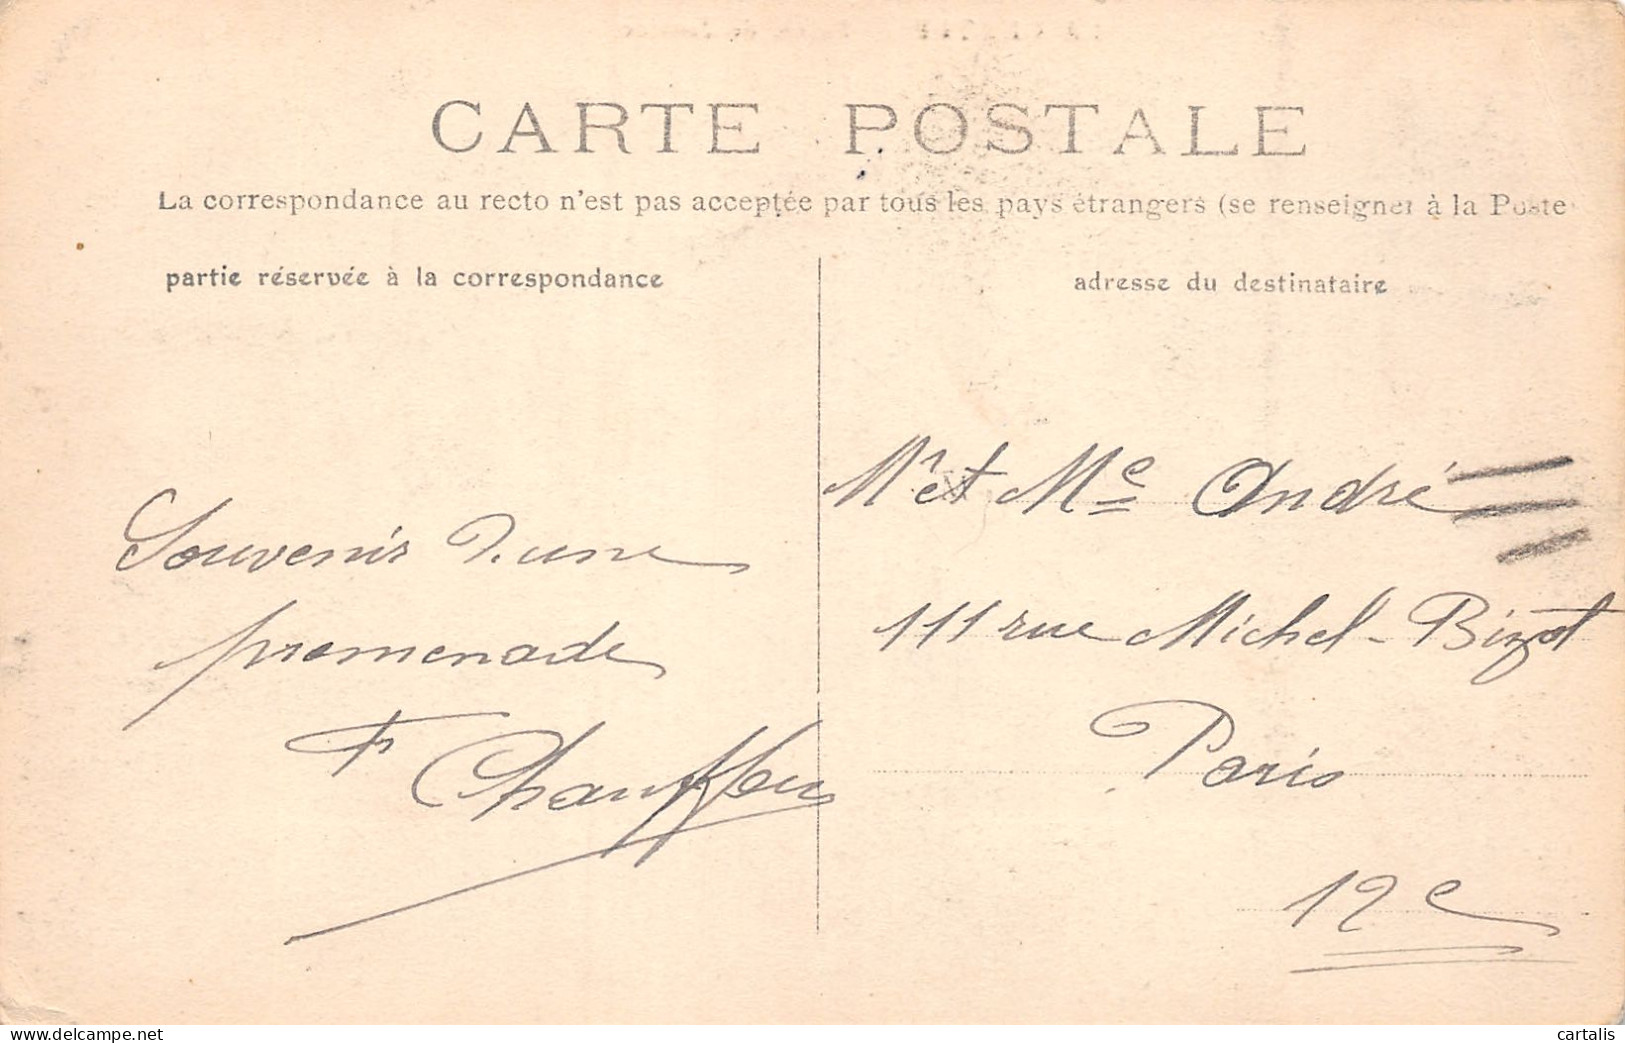 CARTE POSTALE
La correspondance au recto n'est pas acceptée par tous les pays étrangers (se renseigner à la Poste
partie réservée à la correspondance
adresse du destinataire
Souvenir d'une
promenade
F Chauffeu
Mr et Me André
111 rue Michel-Bizot
Paris
12e
www.delcampe.net
cartalis